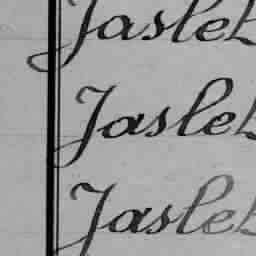 Jasle
Jasle
Jasle